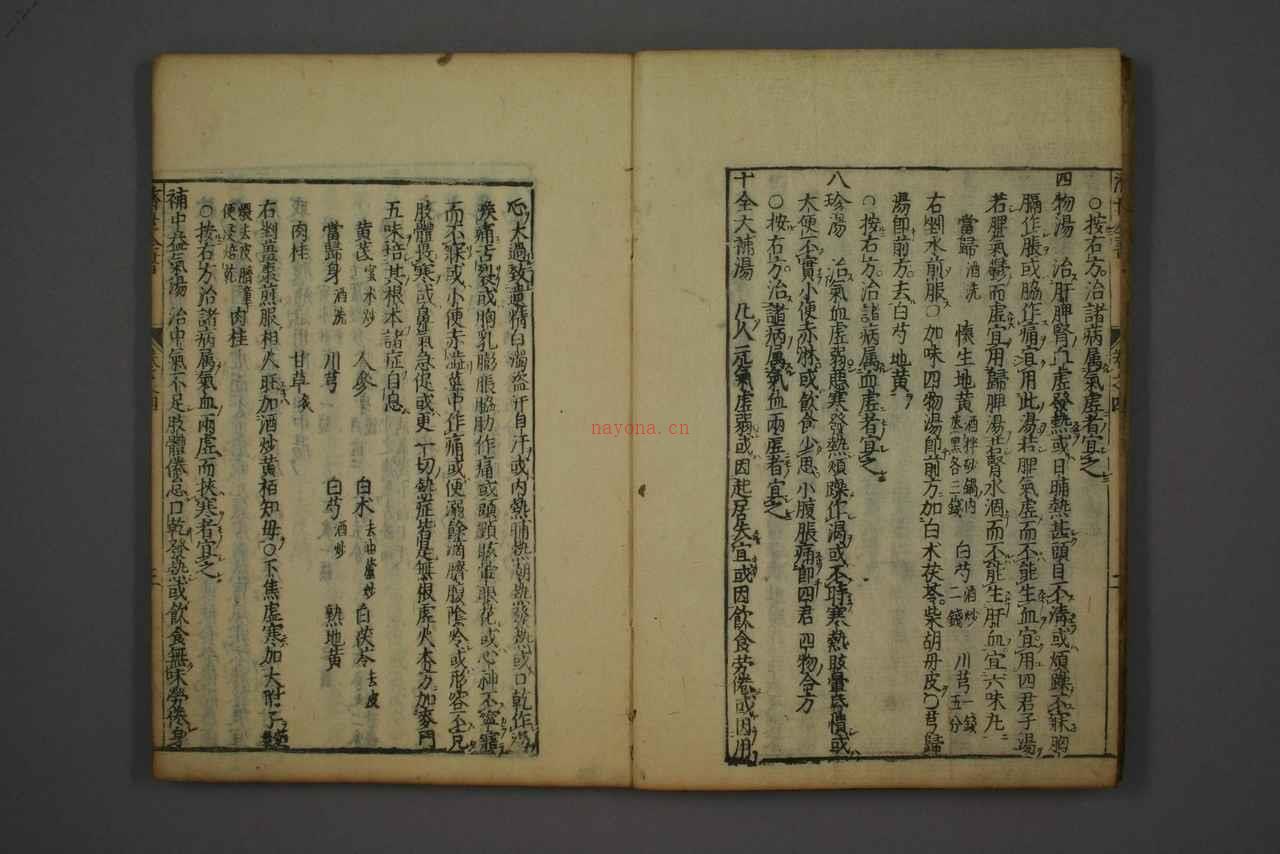 ○按右方治諸病属氣虚者宜之
四物湯 治肝脾腎血虚發熱或日晡熱甚頭目不清或煩躁不寐胸
膈作脹或脇作痛宜用此湯若脾氣虚而不能生血宜用四君子湯
若脾氣鬱而虚宜用歸脾湯若腎水涸而不能生肝血宜六味丸
當歸 酒洗 懐生地黄 酒拌砂鍋内蒸黑各三錢 白芍 酒炒二錢 川芎 一錢五分
右剉水煎服○加味四物湯即前方加白朮茯苓柴胡丹皮○君歸
湯即前方去白芍地黄
○按右方治諸病属血虚者宜之
八珍湯 治氣血虚弱悪寒發熱煩躁作渴或不時寒熱眩暈昏憒或
大便不實小便赤淋或飲食少思小腹脹痛即四君四物合方
○按右方治諸病属氣血兩虚者宜之
十全大補湯 凡人元氣虚弱或因起居失宜或因飲食劳倦或因用
心太過致遺精白濁盗汗自汗或内熱晡熱潮熱發熱或口乾作渴
喉痛舌裂或胸乳膨脹脇肋作痛或頭頸眩暈眼花或心神不寧寤
而不寐或小便赤澁莖中作痛或便溺餘滴臍腹陰冷或形容不充
肢體畏寒或鼻氣急促或更一切熱症皆是無根虚火本方加麥門
五味培其根本諸症自息
黄芪 蜜水炒 人參 白朮 去油蘆炒 白茯苓 去皮
當歸身 酒洗 川芎 白芍 酒炒 熟地黄
肉桂 甘草 炙
右剉薑棗煎服相火旺加酒炒黄栢知毋○下焦虚寒加大附子
肉桂
○按右方治諸病属氣血兩虚而挾寒者宜之
補中益氣湯 治中氣不足肢體倦怠口乾發熱或飲食無味勞倦身
nayona.cn